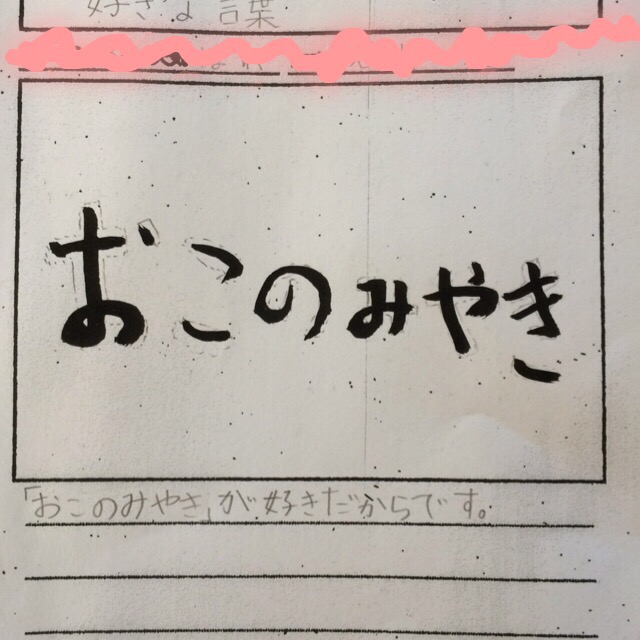 好きな言葉
おこのみやき
「おこのみやき」が好きだからです。